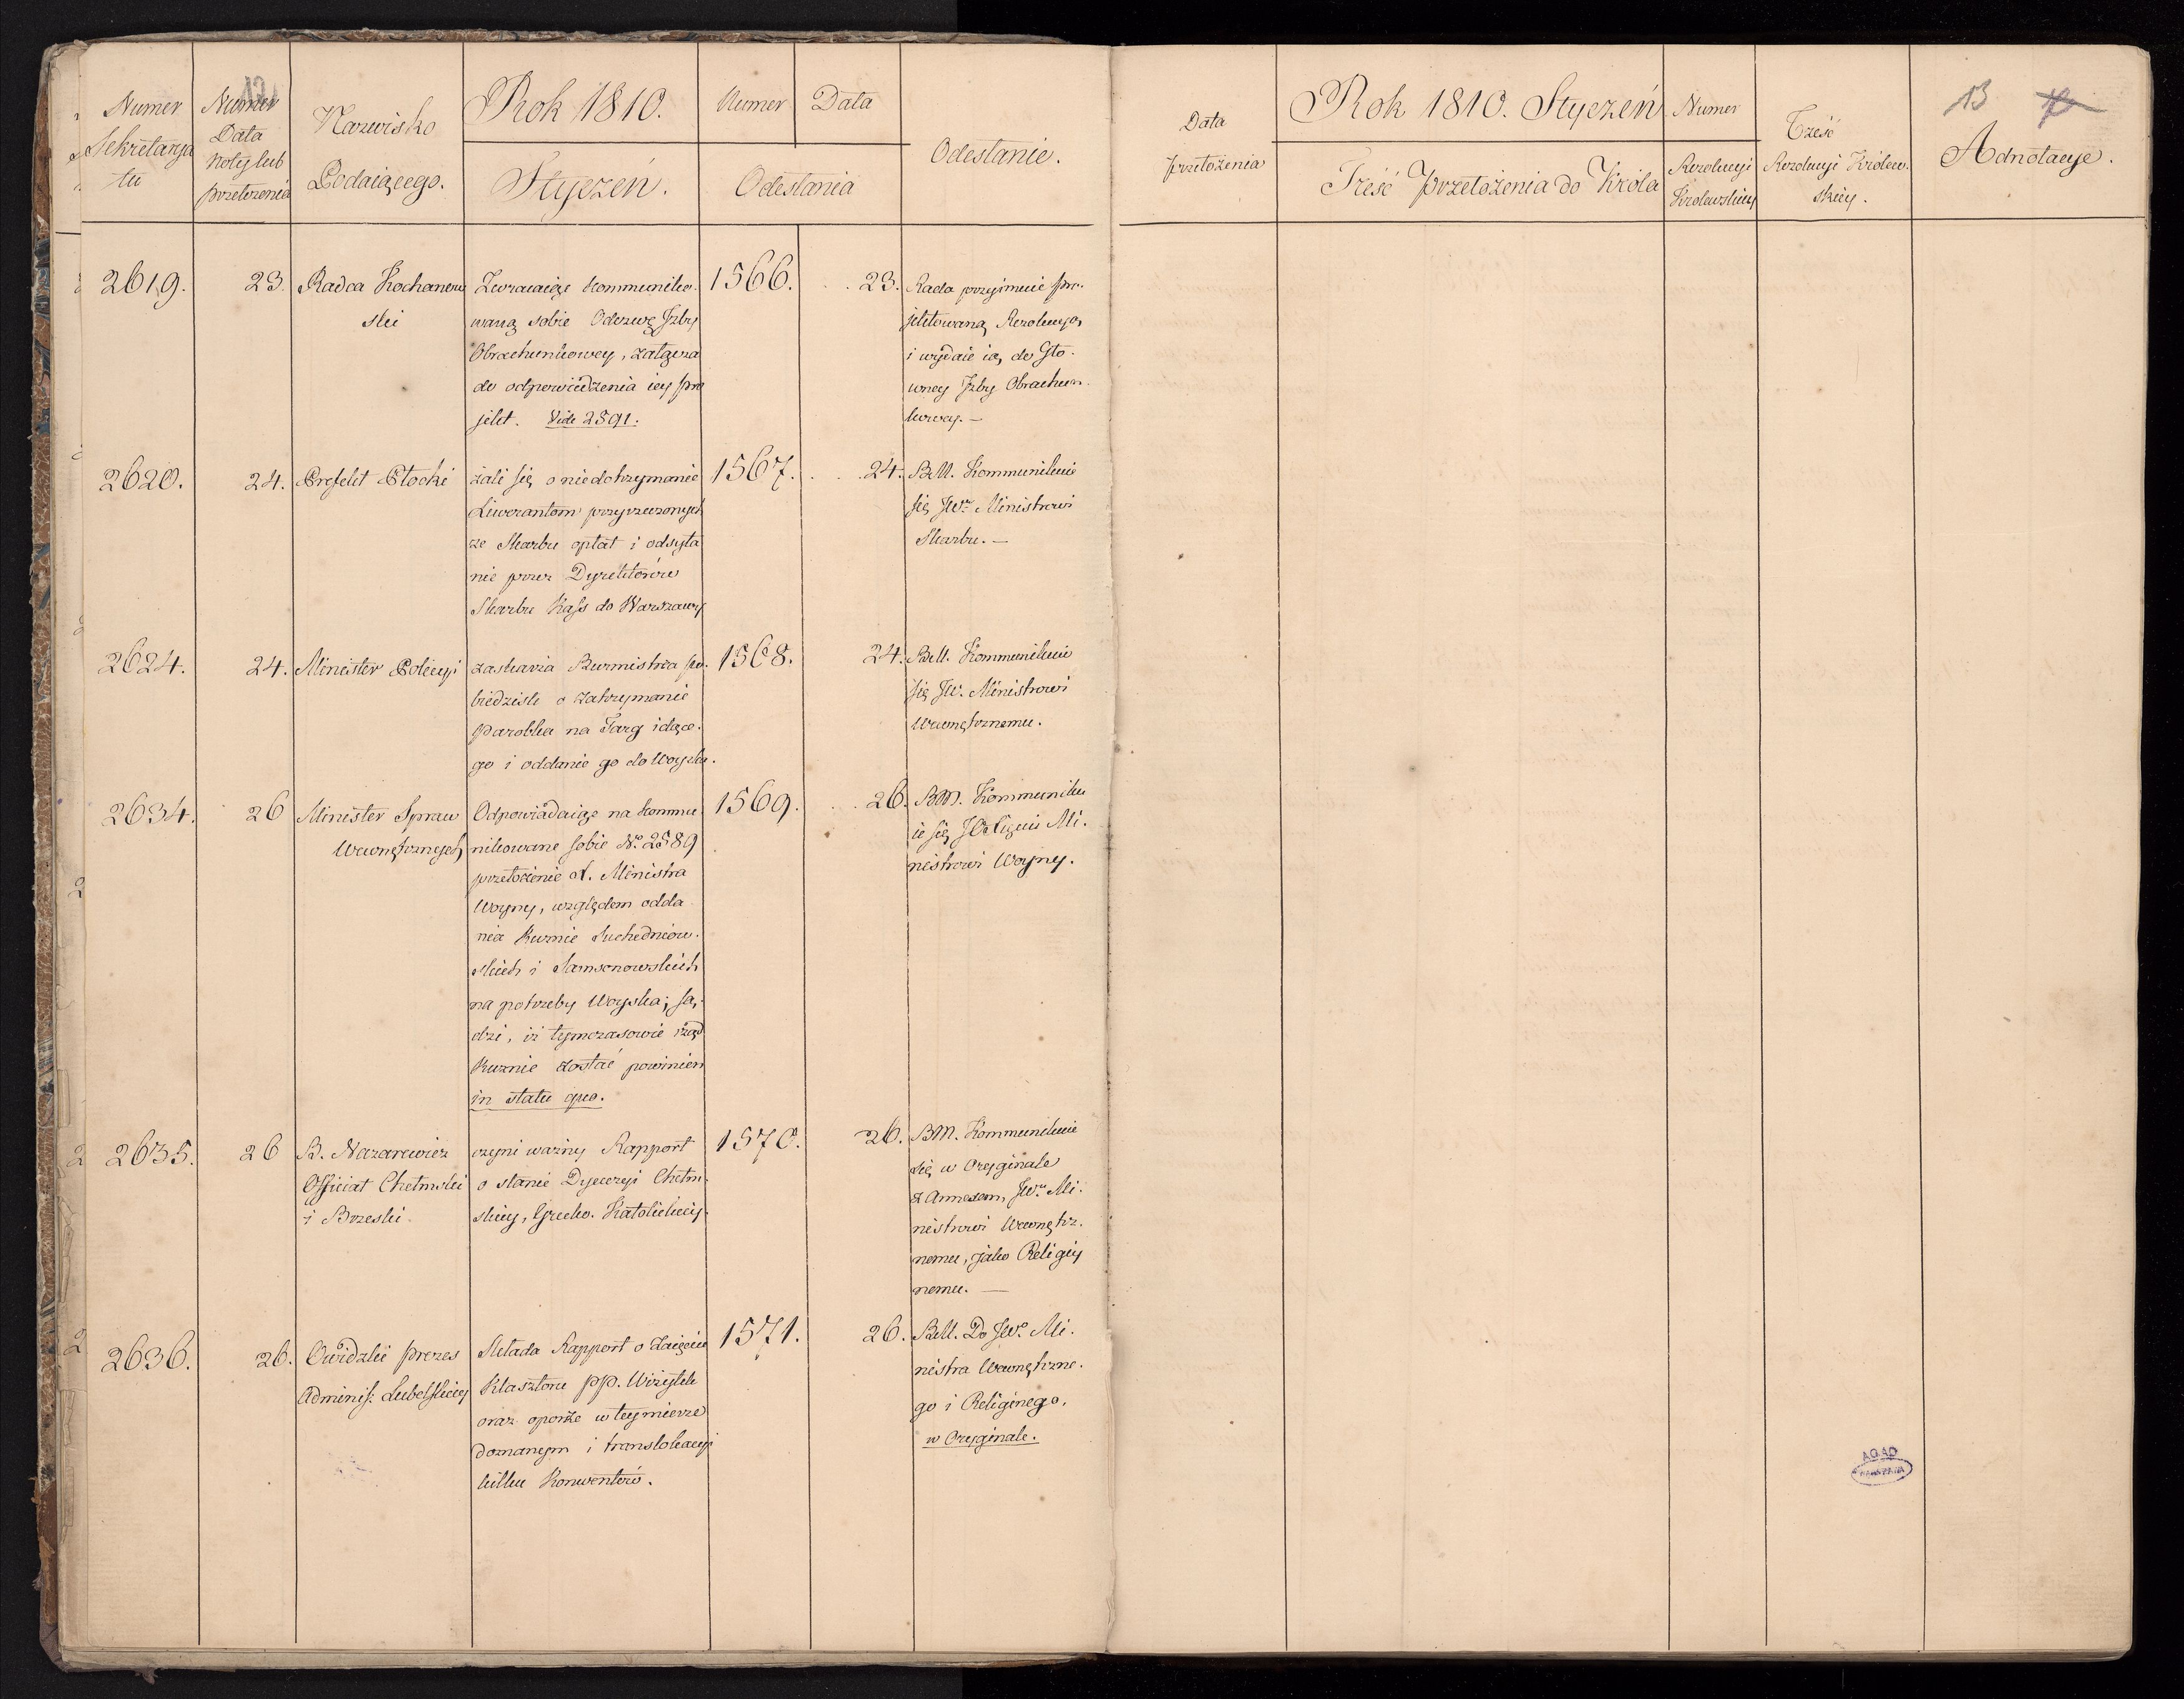 Numer Sekretarya tu
12
Numer Data Noty lub przełożenia
Nazwisko Podaiącego.
Rok 1810.
Styczeń.
Numer Data
Odesłania
Odesłanie.
2619. 23. Radca Kochanow
ski
Zwracaiąc kommuniko-
waną sobie Odezwę Izby
Obrachunkowey, załącza
do odpowiedzenia iey pro
jekt. Vide 2591.
1566. 23. Rada przyimuie pro-
jektowaną Rezolucyą
i wydaie ią do Głó-
wney Izby Obrachun-
kowey. —
2620. 24. Prefekt Płocki
żali się o niedotrzymanie
Liwerantom przyrzeczonych
ze Skarbu opłat i odsyła
nie przez Dyrektorów
Skarbu Kass do Warszawy
1567. 24. BM. Kommunikuie
się JW. Ministrowi
Skarbu. —
2624. 24. Minister Policyi
zaskarża Burmistrza po-
biedzisk o zatrzymanie
Parobka na Targ idące-
go i oddanie go do Woyska.
1568. 24. BM. Kommunikuie
się JW. Ministrowi
Wewnętrznemu.
2634. 26 Minister Spraw
Wewnętrznych
Odpowiadaiąc na kommu
nikowane sobie No. 2589
przełożenie Ministra
Woyny, względem odda
nia Kuznic Suchedniow-
skich i Samsonowskich
na potrzeby Woyska; są-
dzi, iż tymczasowie rząd
Kuznic zostać powinien
in statu quo.
1569. 26. BM. Kommuniku
ie się Ministrowi Woyny.
2635. 26 B. Nazarewicz
Officiał Chełmski
i Brzeski.
czyni ważny Rapport
o stanie Dyecezyi Chełm-
skiey, Grecko-Katolickiey.
1570. 26. BM. Kommunikuie
się w Oryginale
z Annexem, JW. Mi-
nistrowi Wewnętrz-
nemu, jako Religiy
nemu. —
2636. 26. Owidzki Prezes
Adminis: Lubelskiey
Składa Rapport o zaięciu
Klasztoru PP. Wizytek
oraz oporze w tey mierze
doznanym i translokacyi
kilku Konwentów.
1571. 26. BM. Do JW. Mi-
nistra Wewnętrzne-
go i Religinego,
w Oryginale.
Data przełożenia
Rok 1810. Styczeń
Treść Przełożenia do Króla
Numer Rezolucyi Królewskiey
Treść Rezolucyi Królew-
skiey.
13
Adnotacye.
AGAD
WARSZAWA